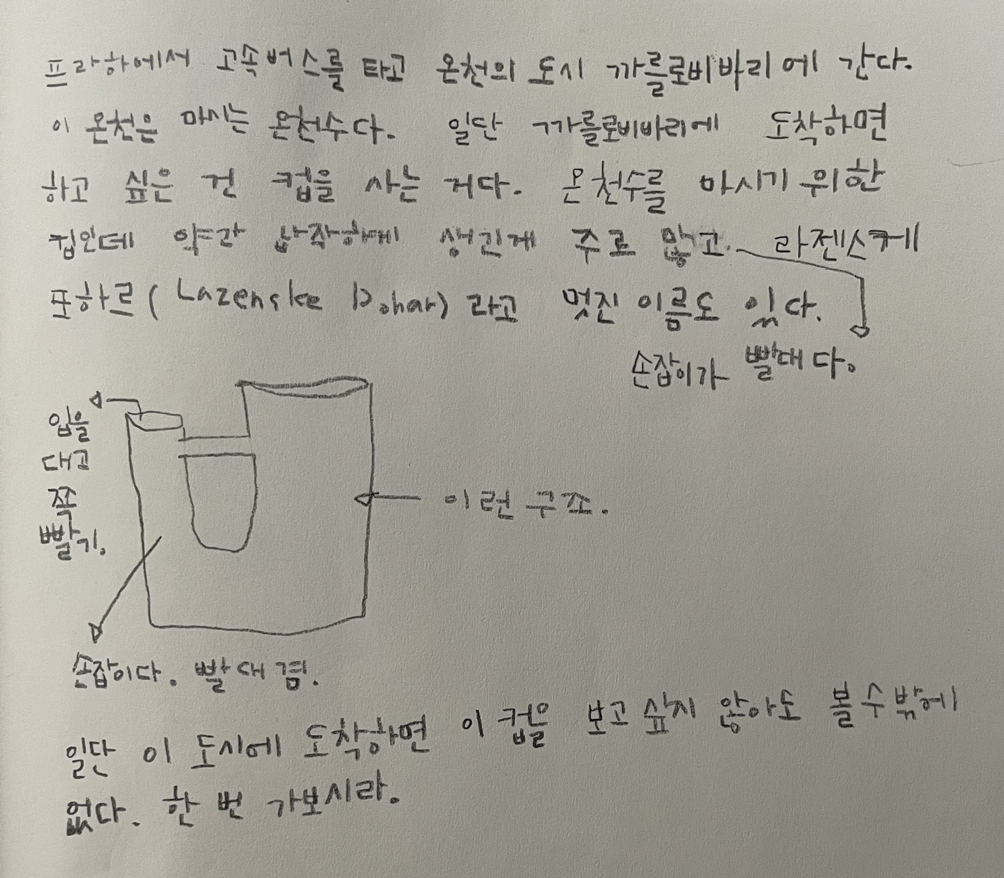 프라하에서 고속버스를 타고 온천의 도시 까를로비바리에 간다.
이 온천은 마시는 온천수다. 일단 까를로비바리에 도착하면
하고 싶은 건 컵을 사는 거다. 온천수를 마시기 위한
컵인데 약간 납작하게 생긴게 주로 많고. 라젠스케
포하르(Lazenske Pohar)라고 멋진 이름도 있다.
손잡이가 빨대다.
입을
대고
쪽
빨기.
이런 구조.
손잡이다. 빨대 겸.
일단 이 도시에 도착하면 이 컵을 보고 싶지 않아도 볼 수밖에
없다. 한 번 가보시라.